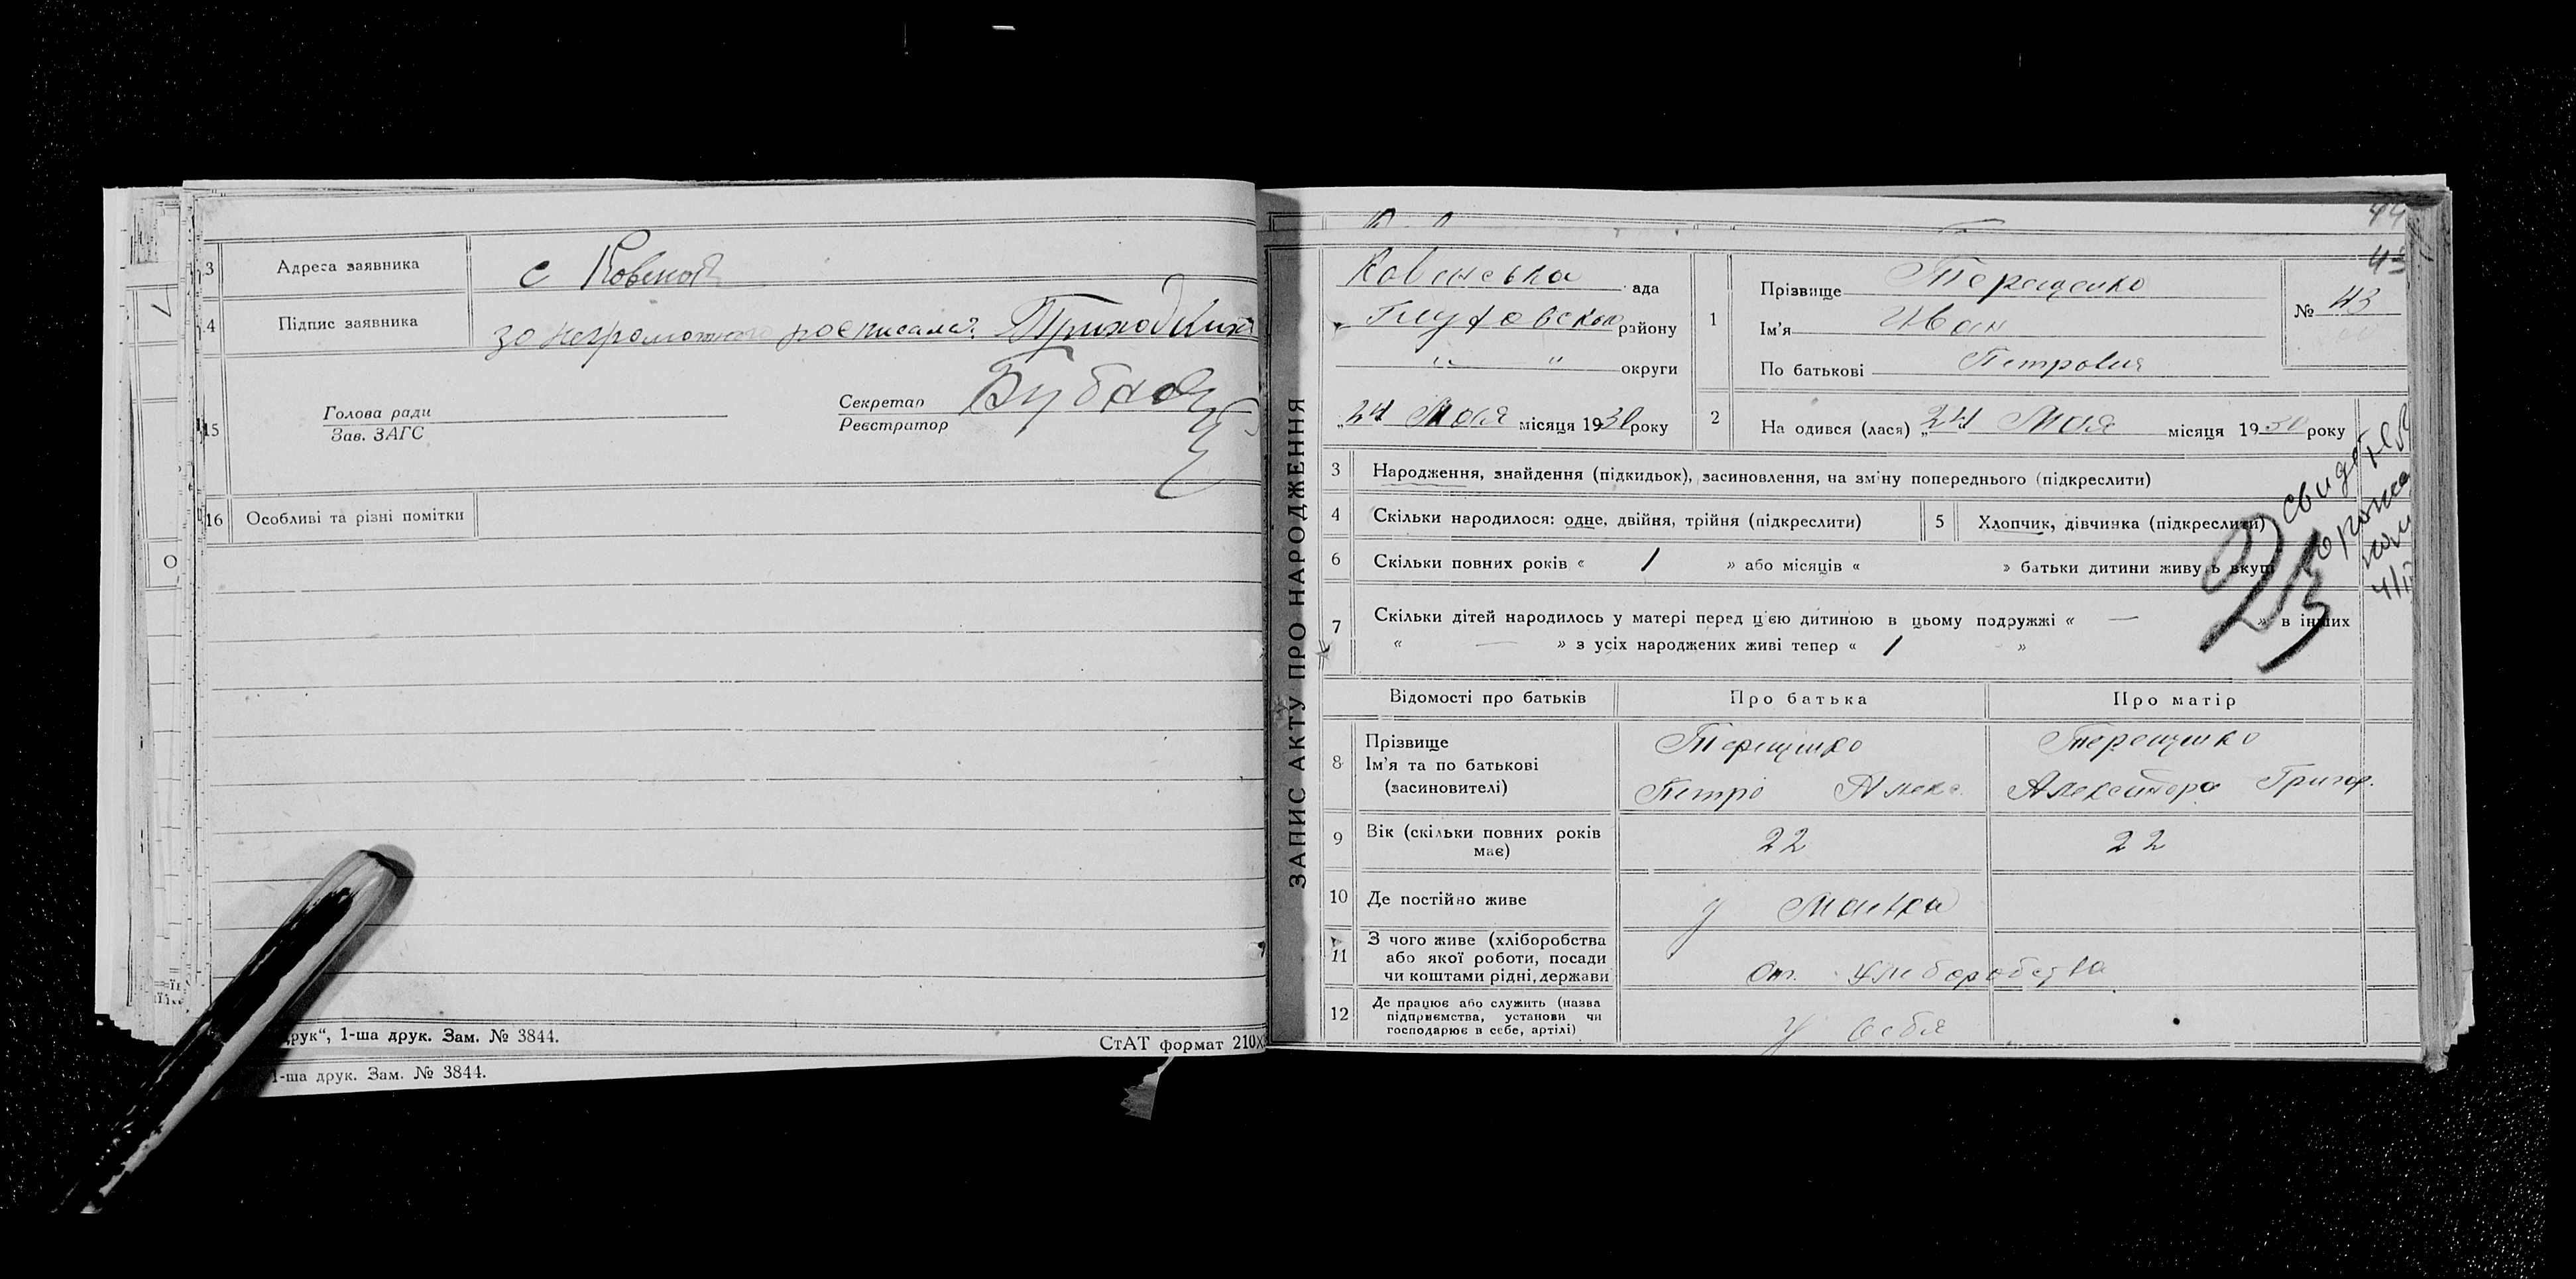 3 Адреса заявника с Ковенка
4 Підпис заявника за неграмотного росписалс. Приходькин
15 Голова ради
Зав. ЗАГС
Секретар
Реєстратор
16 Особливі та різні помітки
друк“, 1-ша друк. Зам. № 3844.
СтАТ формат 210х
1-ша друк. Зам. № 3844.
44
43
ЗАПИС АКТУ ПРО НАРОДЖЕННЯ
Ковенська ада
Глуховського району
" " округи
„24 Мая місяця 1930 року
1 Прізвище Терещенко
Ім'я Иван
По батькові Петрович
№ 43
2 На одився (лася) „24 Мая місяця 1930 року
3 Народження, знайдення (підкидьок), засиновлення, на зміну попереднього (підкреслити)
4 Скільки народилося: одне, двійня, трійня (підкреслити)
5 Хлопчик, дівчинка (підкреслити)
6 Скільки повних років « 1 » або місяців « » батьки дитини живуть вкупі
7 Скільки дітей народилось у матері перед цією дитиною в цьому подружжі « — » в інших
« — » з усіх народжених живі тепер « 1 »
23
Відомості про батьків Про батька Про матір
8 Прізвище
Ім'я та по батькові
(засновителі)
Терещенко
Петро Алекс.
Терещенко
Александра Григор.
9 Вік (скільки повних років має) 22 22
10 Де постійно живе
11 З чого живе (хліборобства
або якої роботи, посади
чи коштами рідні, держави
От хлиборобства
12 Де працює або служить (назва
підприємства, установи чи
господарює в себе, артілі)
У себя